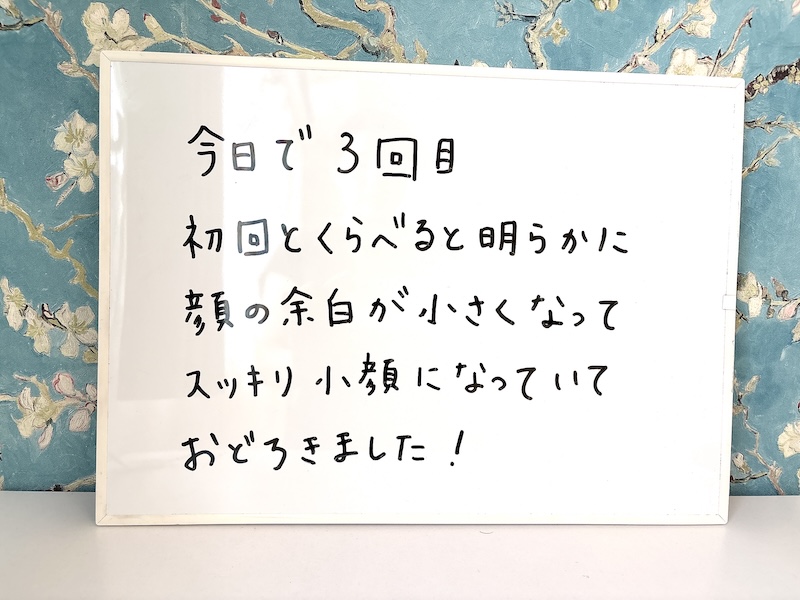 今日で3回目
初回とくらべると明らかに
顔の余白が小さくなって
スッキリ小顔になっていて
おどろきました!